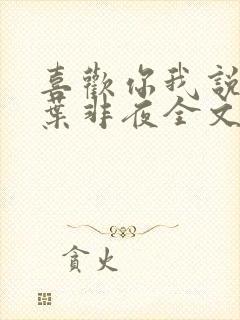 喜歡你我說
葉非夜全文
貪火